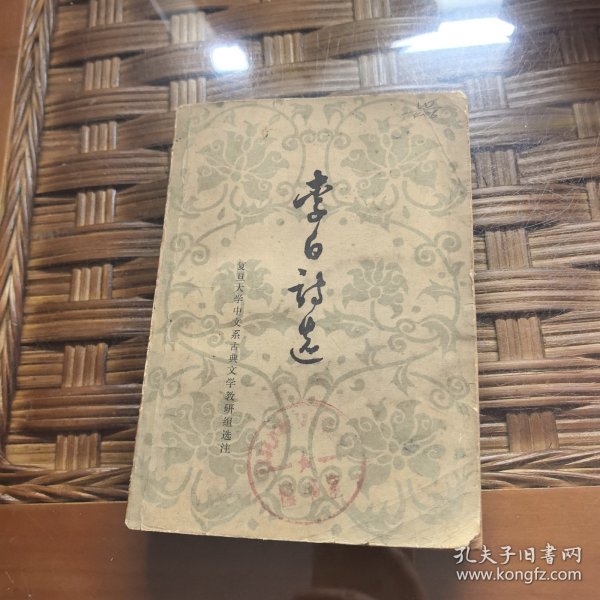 李白詩选
复旦大学中文系古典文学教研组选注
孔夫子旧书网
www.kongfz.com